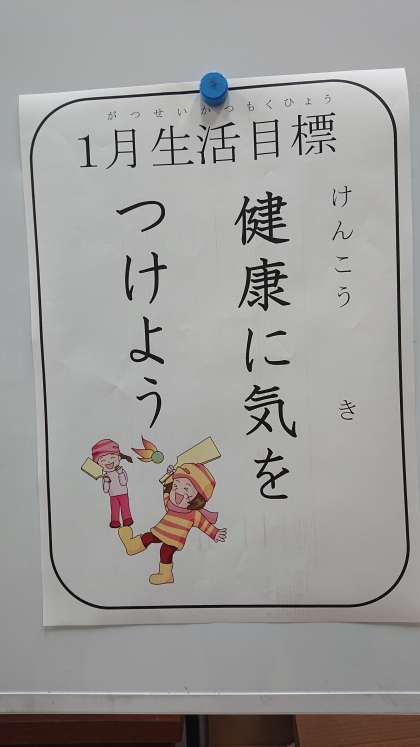 がつせいかつもくひょう
1月生活目標
けんこう き
健康に気を
つけよう